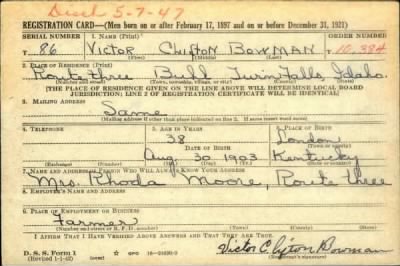 Died 5-7-47
REGISTRATION CARD—(Men born on or after February 17, 1897 and on or before December 31, 1921)
SERIAL NUMBER 1. NAME (Print) ORDER NUMBER
T 86 Victor Clifton Bowman T 10,384
(First) (Middle) (Last)
2. PLACE OF RESIDENCE (Print)
Route three Buhl Twin Falls, Idaho
(Number and street) (Town, township, village, or city) (County) (State)
[THE PLACE OF RESIDENCE GIVEN ON THE LINE ABOVE WILL DETERMINE LOCAL BOARD
JURISDICTION; LINE 2 OF REGISTRATION CERTIFICATE WILL BE IDENTICAL]
3. MAILING ADDRESS
Same
[Mailing address if other than place indicated on line 2. If same insert word same]
4. TELEPHONE 5. AGE IN YEARS 6. PLACE OF BIRTH
38 London
DATE OF BIRTH (Town or county)
Aug 30 1903 Kentucky
(Exchange) (Number) (Mo.) (Day) (Yr.) (State or country)
7. NAME AND ADDRESS OF PERSON WHO WILL ALWAYS KNOW YOUR ADDRESS
Mrs. Rhoda Moore Route three
8. EMPLOYER'S NAME AND ADDRESS
9. PLACE OF EMPLOYMENT OR BUSINESS
Farmer
(Number and street or R. F. D. number) (Town) (County) (State)
I AFFIRM THAT I HAVE VERIFIED ABOVE ANSWERS AND THAT THEY ARE TRUE.
D. S. S. Form 1
(Revised 1-1-42) (over) GPO
Victor Clifton Bowman
(Registrant's signature)